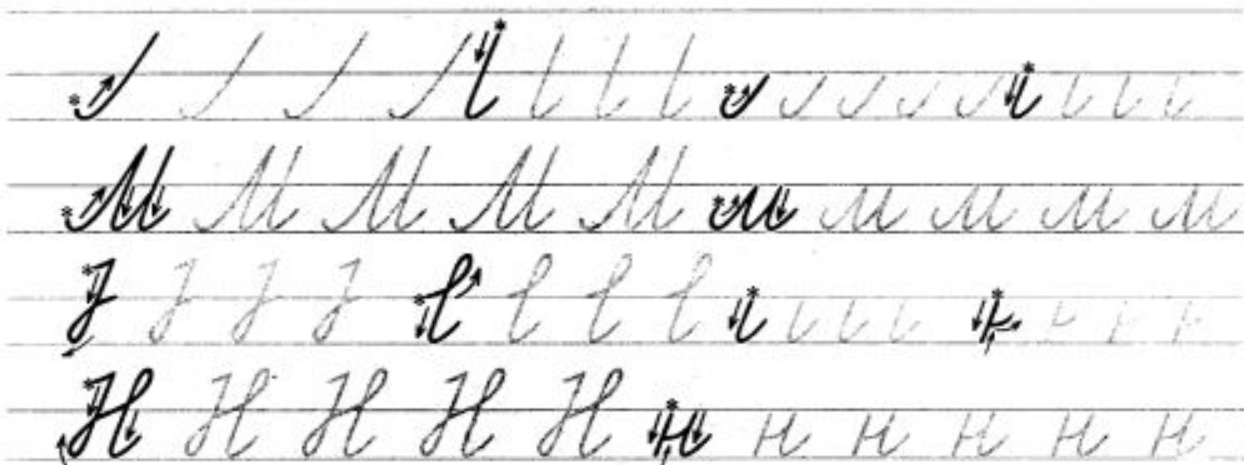 М М М М М м м м м м
Н Н Н Н Н н н н н н н